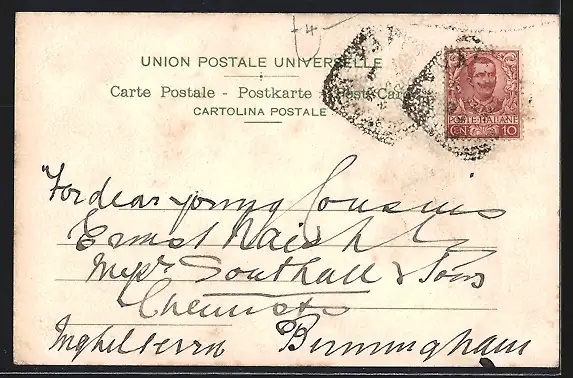 4
UNION POSTALE UNIVERSELLE
Carte Postale - Postkarte - Post Card
CARTOLINA POSTALE
POSTE ITALIANE
CN. 10
"For dear young Cousins
Ernest Naish
Messrs Southall & Sons
Chemists
Inghilterra Birmingham